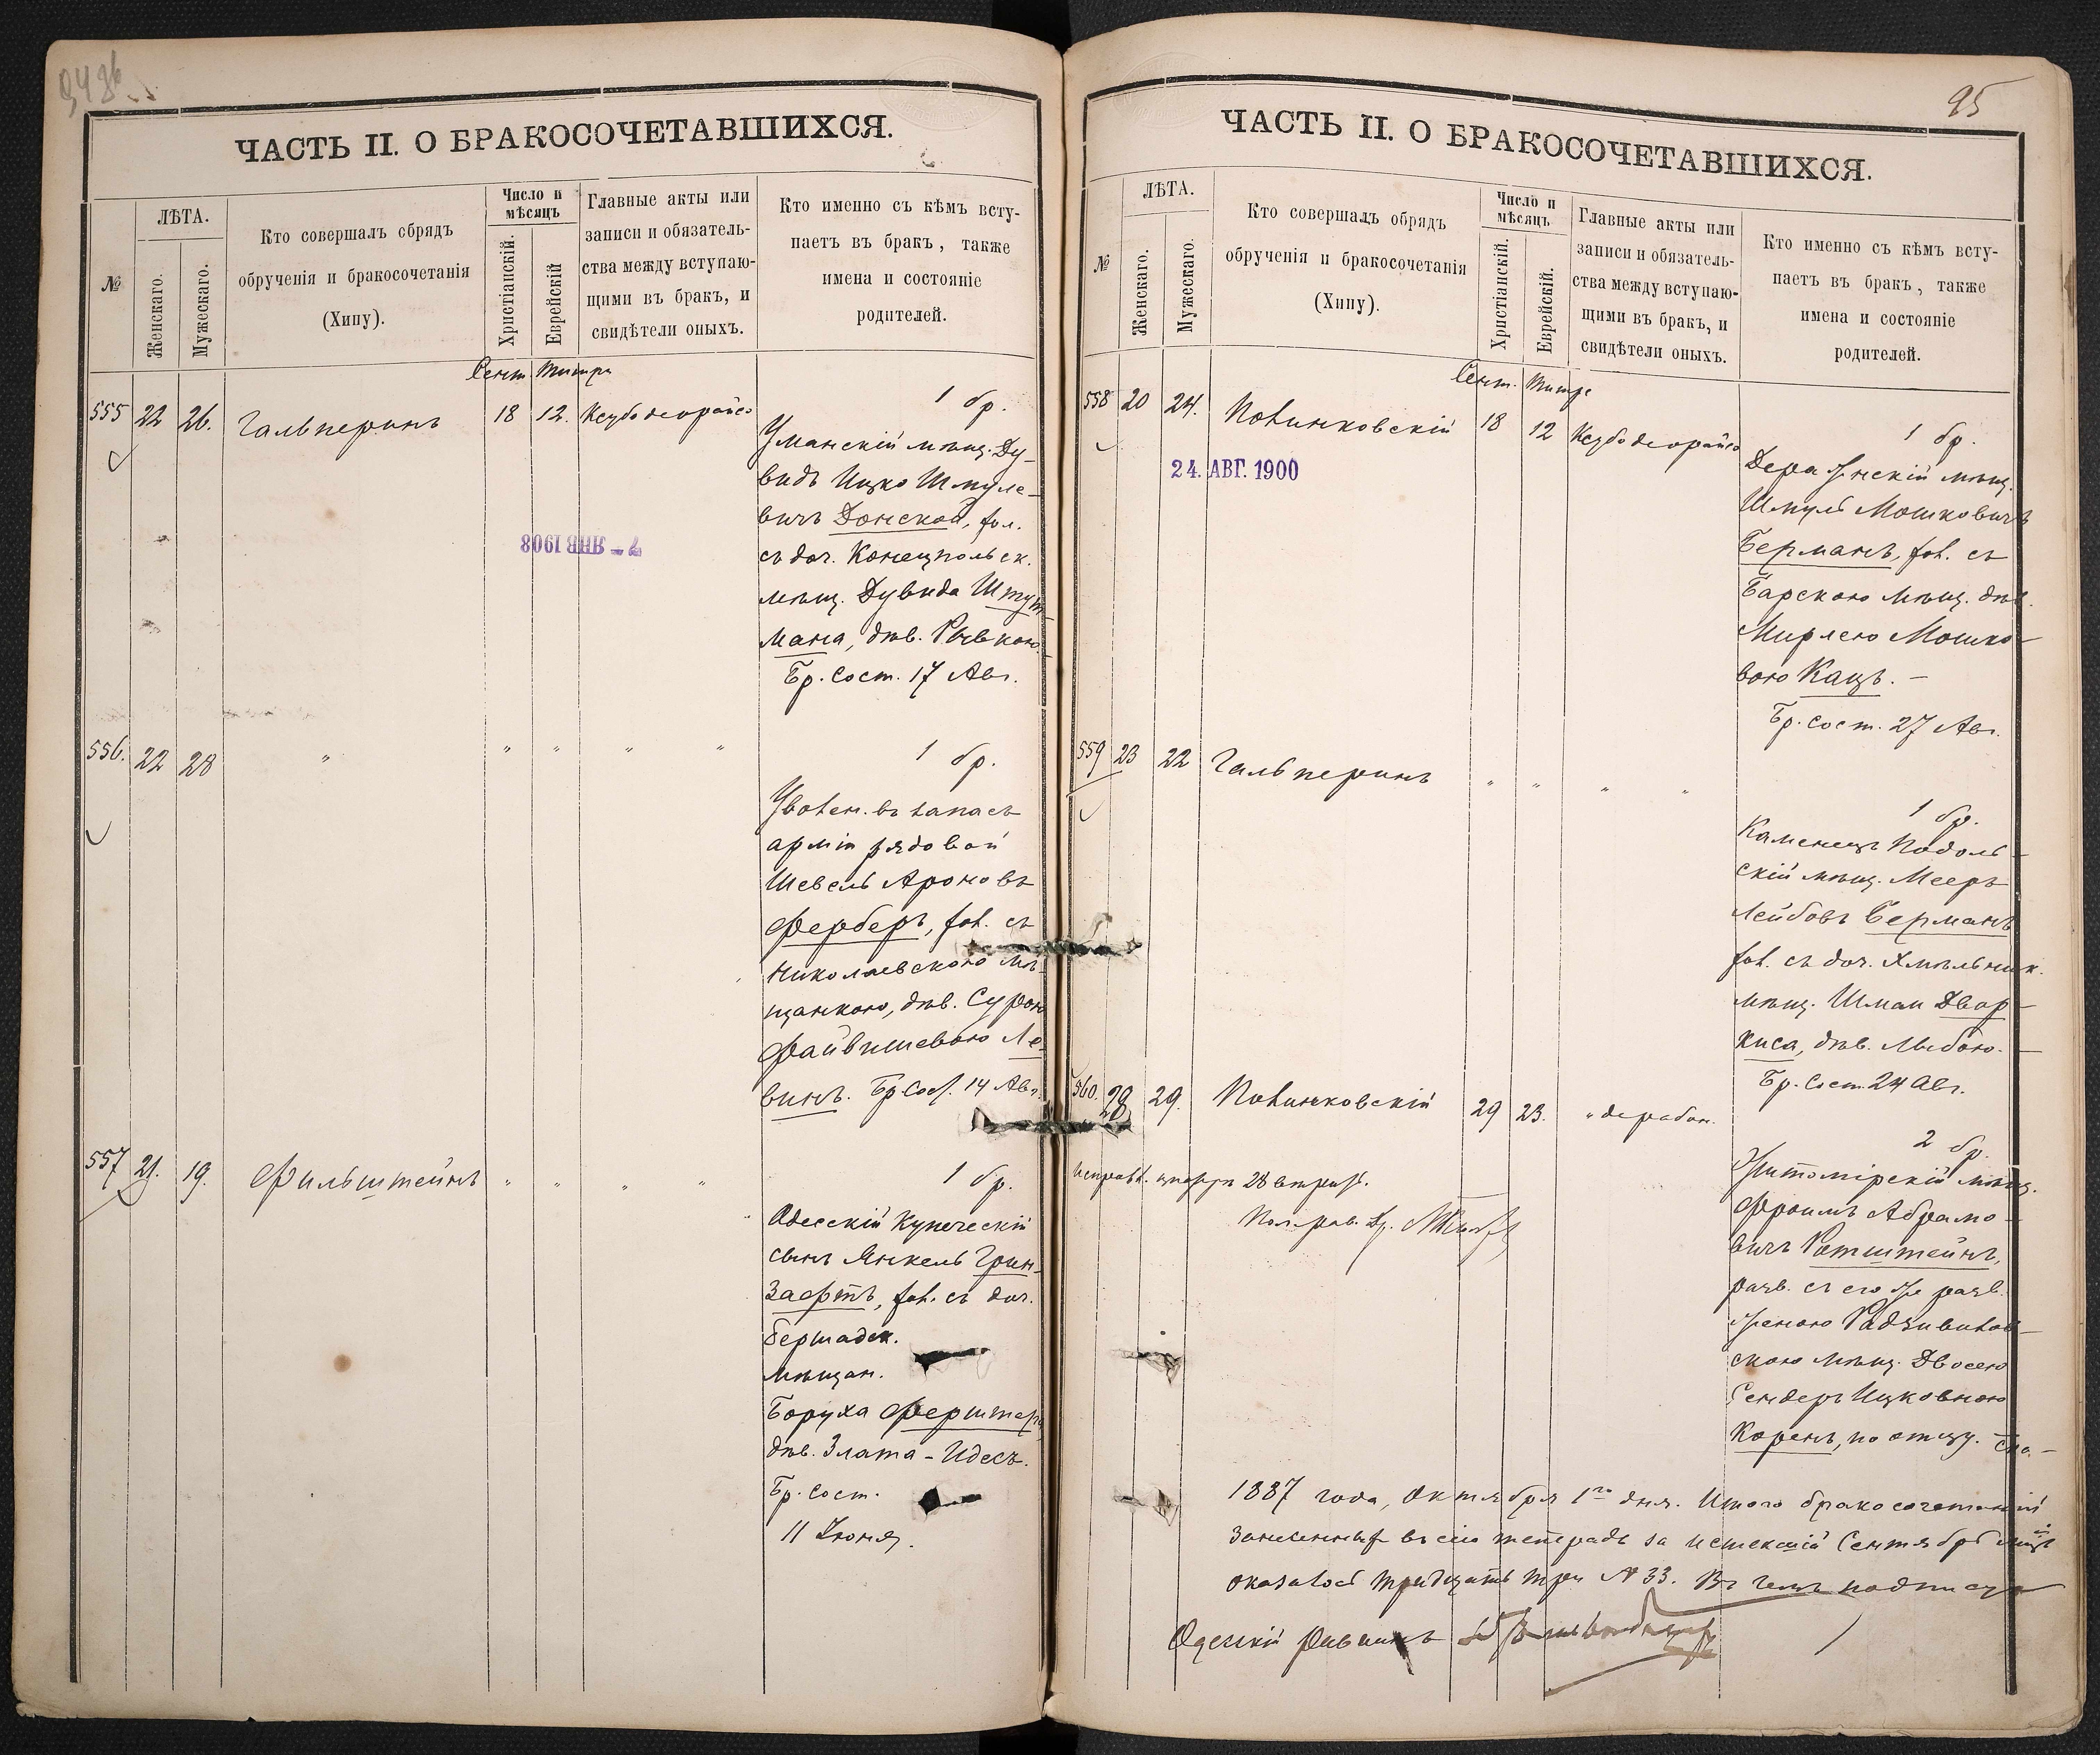 ЧАСТЬ II. О БРАКОСОЧЕТАВШИХСЯ.
№
ЛѢТА.
Женскаго.
Мужескаго.
Кто совершалъ обрядъ
обрученія и бракосочетанія
(Хипу).
Число и
мѣсяцъ
Христіанскій.
Еврейскій
Главные акты или
записи и обязатель-
ства между вступаю-
щими въ бракъ, и
свидѣтели оныхъ.
Кто именно съ кѣмъ всту-
паетъ въ бракъ, также
имена и состояніе
родителей.
Сент. Тишри
555 22 26. Гальперинъ 18 12. Ксубо деорайсо
1 бр.
Уманскій мѣщ. Ду-
видъ Ицко Шмуле-
вичъ Донской, хол.
съ доч. Конецпольск.
мѣщ. Дувида Штут-
мана, дѣв. Ривкою.
Бр. сост. 17 Авг.
7 - ЯНВ 1908
556. 22 28 " " " " "
1 бр.
Уволен. въ запасъ
арміи рядовой
Шевель Ароновъ
Ферберъ, хол. съ
Николаевскою мѣ-
щанкою, дѣв. Сурою
Файвишевою Ле-
винъ. Бр. сост. 14 Авг.
557 21. 19. Фильштейнъ " " " "
1 бр.
Одесскій Купеческій
сынъ Янкель Грин-
Зафтъ, хол. съ доч.
Бершадск.
мѣщан.
Боруха Ферштеръ
дѣв. Злата-Идесъ.
Бр. сост.
11 Іюня.
95
ЧАСТЬ II. О БРАКОСОЧЕТАВШИХСЯ.
№
ЛѢТА.
Женскаго.
Мужескаго.
Кто совершалъ обрядъ
обрученія и бракосочетанія
(Хипу).
Число и
мѣсяцъ
Христіанскій.
Еврейскій.
Главные акты или
записи и обязатель-
ства между вступаю-
щими въ бракъ, и
свидѣтели оныхъ.
Кто именно съ кѣмъ всту-
паетъ въ бракъ, также
имена и состояніе
родителей.
Сент. Тишре
558 20 24. Повинковскій 18 12 Ксубо деорайсо
24. АВГ. 1900
1 бр.
Деражнскій мѣщ.
Шмуль Мошковичъ
Берманъ, хол. съ
Барскою мѣщ. дѣв.
Мирлею Мошко-
вою Кацъ. -
Бр. сост. 27 Авг.
559 23 22 Гальперинъ " " " "
1 бр.
Каменецъ Подоль-
скій мѣщ. Мееръ
Лейбовъ Берманъ
хол. съ доч. Хмѣльник.
мѣщ. Шмаи Двор-
киса, дѣв. Любою.
Бр. Сост. 24 Авг.
560. 28 29. Повинковскій 29 23. " дерабон.
Исправл. цифры 28
2 бр.
Житомірскій мѣщ.
Фроимъ Абрамо-
вичъ Ротштейнъ,
разв. съ его же разв.
женою Радзивилов-
скою мѣщ. Двосею
Сендеръ Ицковною
Коренъ, по отцу.
1887 года, Октября 1го дня. Итого бракосочетаній
занесенныхъ въ сію тетрадь за истекшій Сентябрь мѣцъ
оказалось тридцать три № 33. Въ чемъ подписуюсь
Одесскій Раввинъ